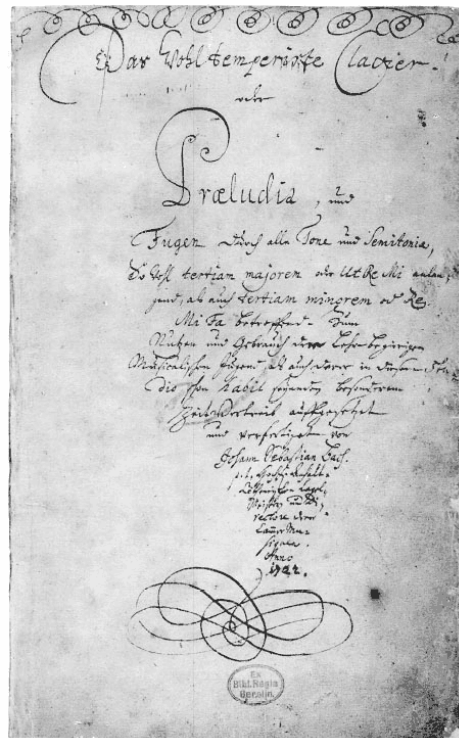 Das Wohltemperirte Clavier.
oder
Præludia, und
Fugen durch alle Tone und Semitonia,
So wohl tertiam majorem oder Ut Re Mi anlan-
gend, als auch tertiam minorem oder Re
Mi Fa betreffend. Zum
Nutzen und Gebrauch der Lehrbegierigen
Musicalischen Jugend, als auch derer in diesem stu-
dio schon habil seyenden besonderem
Zeitvertreib auffgesetzet
und verfertiget von
Johann Sebastian Bach.
p. t. Hochfürstl. Anhalt-
Cöthenischen Capel-
Meistern und Di-
rectore derer
Camer Mu-
siquen.
Anno
1722.
Ex
Bibl. Regia
Berolin.